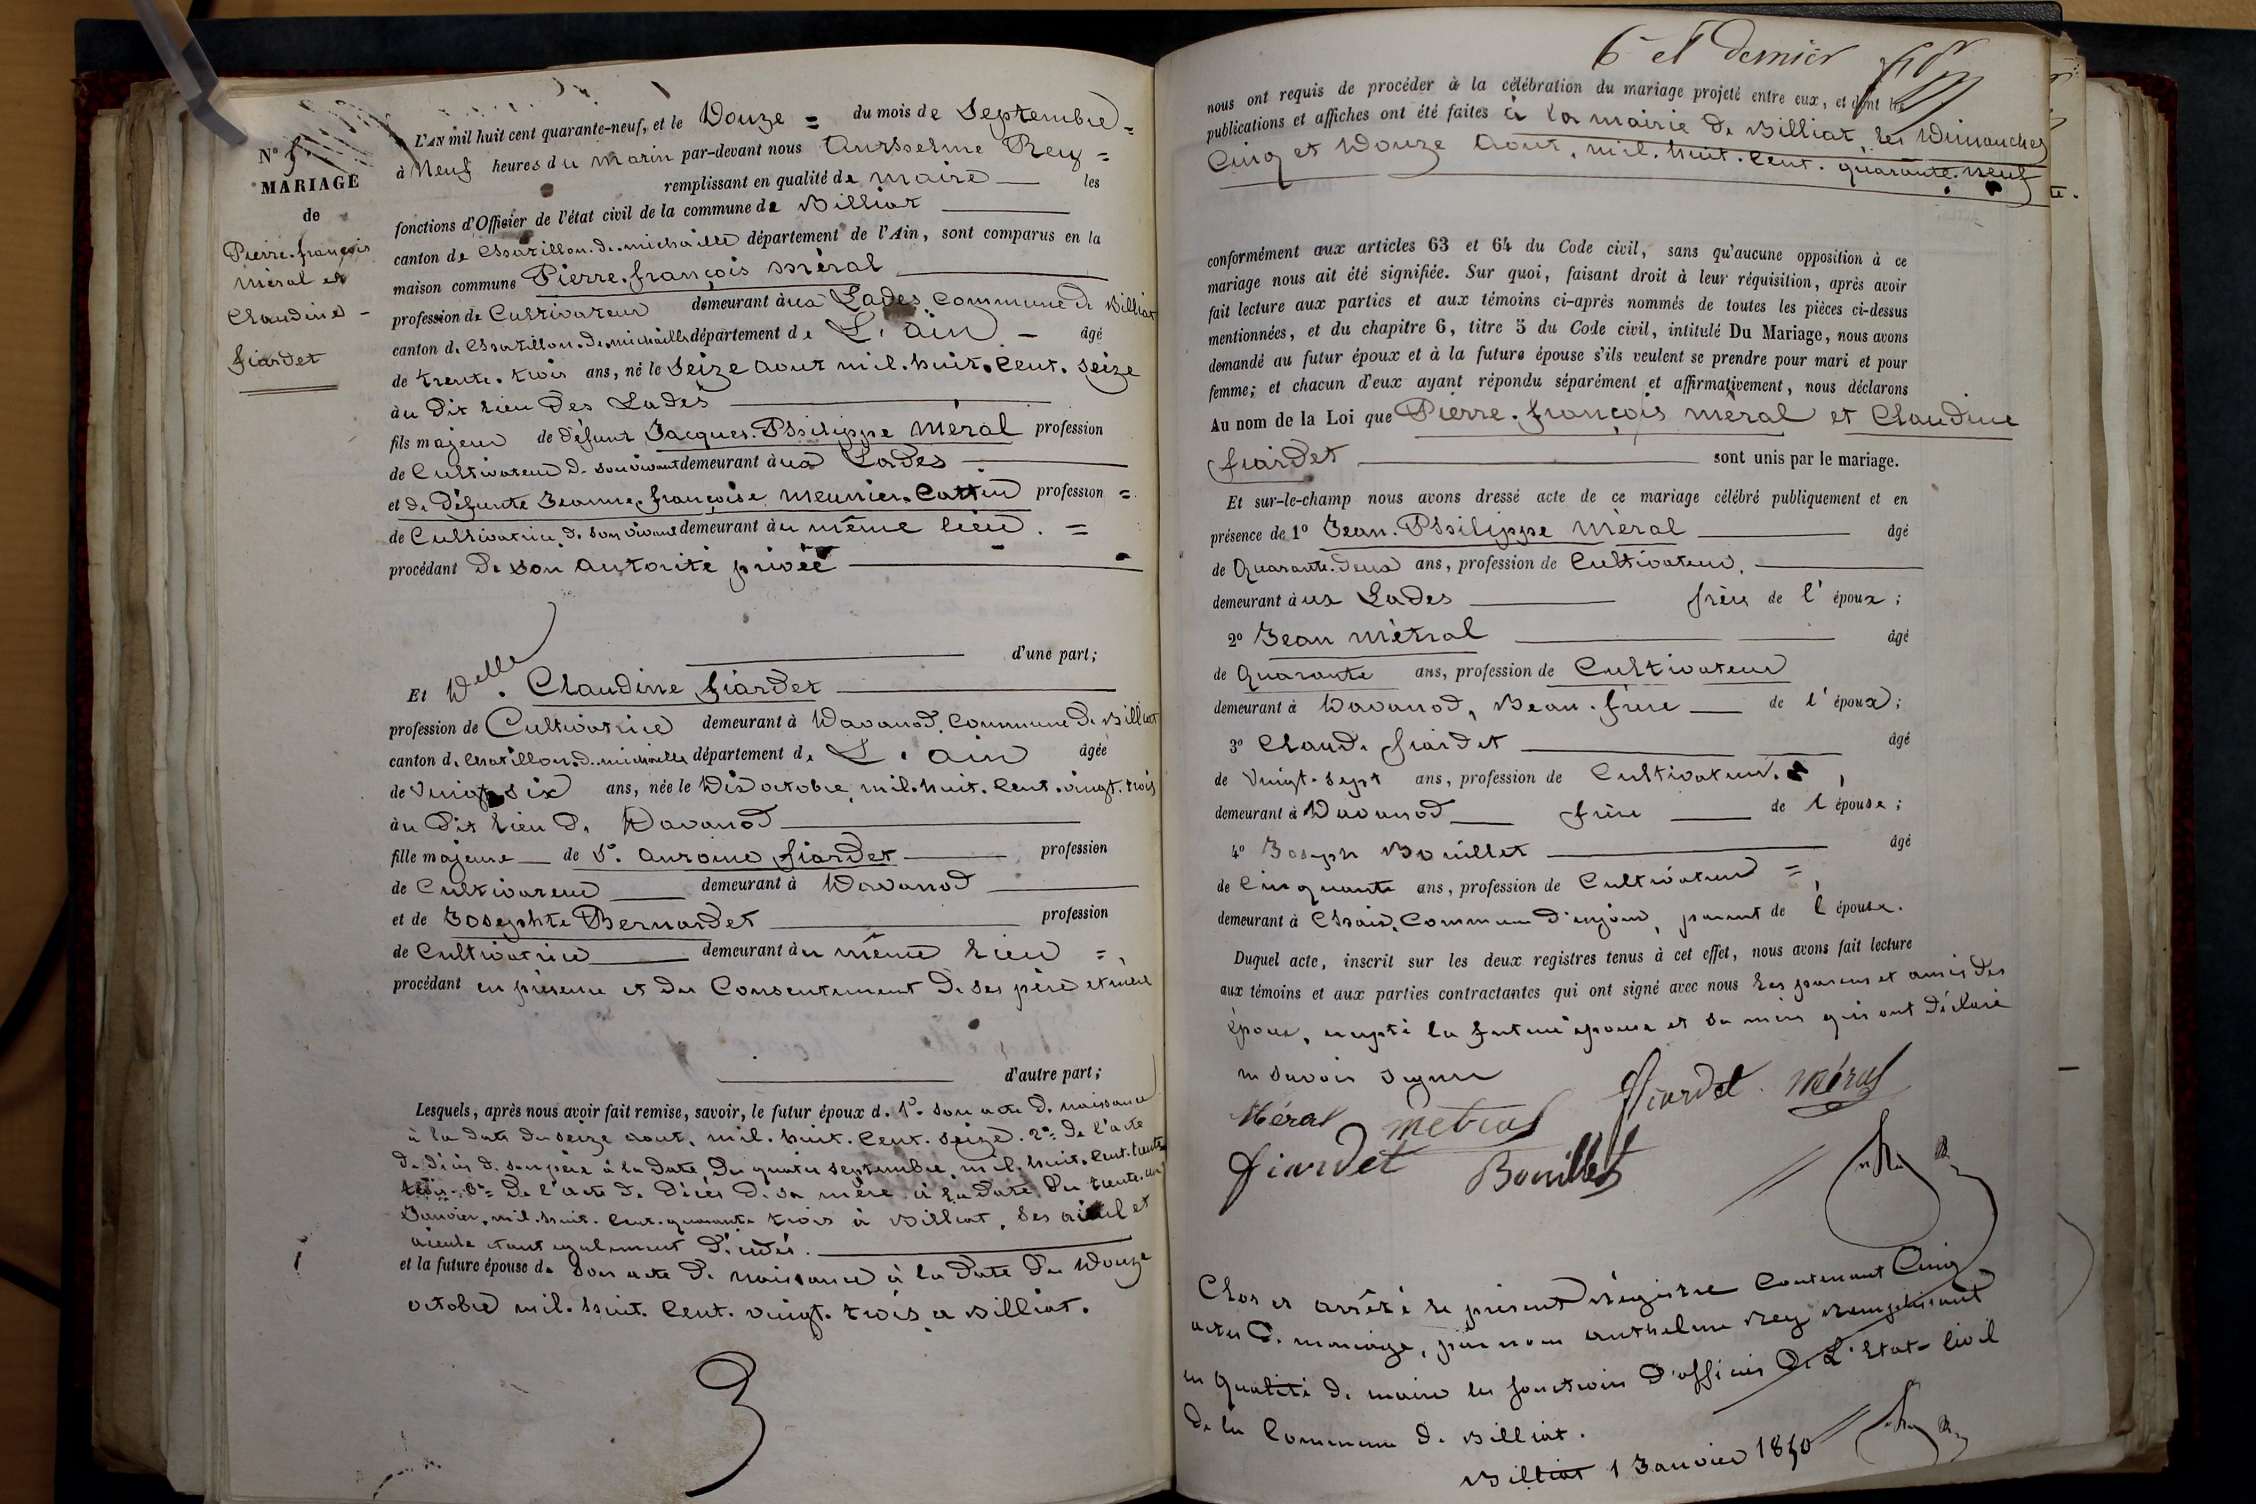 N° 5.
MARIAGE
de
Pierre-françois
Méral et
Claudine
fiardet
L'AN mil huit cent quarante-neuf, et le Douze = du mois de Septembre =
à Neuf heures du matin par-devant nous Anthelme Rey =
remplissant en qualité de maire les
fonctions d'Officier de l'état civil de la commune de Billiat
canton de Chatillon-de-michaille département de l'Ain, sont comparus en la
maison commune Pierre-françois Méral
profession de Cultivateur demeurant aux Lades, Commune de Billiat
canton de Chatillon-de-michaille département de L'ain - âgé
de trente-trois ans, né le Seize aout mil-huit-cent-seize
au Dit Lieu Des Lades
fils majeur de défunt Jacques-Philippe Méral profession
de Cultivateur de son vivant demeurant aux Lades
et de Défunte Jeanne-françoise Meunier-Cattin profession =
de Cultivatrice de son vivant demeurant au même lieu. =
procédant De son autorité privée
d'une part;
Et Delle. Claudine fiardet
profession de Cultivatrice demeurant à Davanod, Commune de Billiat
canton de Chatillon-de-michaille département de L'ain âgée
de vingt-six ans, née le Dix octobre, mil-huit-cent-vingt-trois
au Dit Lieu De Davanod
fille majeure de Sr. antoine fiardet profession
de Cultivateur demeurant à Davanod
et de Josephte Bernardet profession
de Cultivatrice demeurant au même Lieu =
procédant en présence et du Consentement De ses père et mère
d'autre part;
Lesquels, après nous avoir fait remise, savoir, le futur époux de 1°. Son acte De naissance
à la date du seize aout, mil-huit-cent-seize. 2°= De l'acte
De décès de son père à la date Du quatre septembre, mil-huit-cent-trente
trois. 3°= De l'acte De Décès De sa mère à la date Du trente-un
Janvier, mil-huit-cent-quarante trois à Billiat, Ses aieul et
aieule étant egalement Décédés.
et la future épouse de Son acte De naissance à la date Du Douze
octobre mil-huit-cent-vingt-trois a Billiat.
3
6e et dernier
nous ont requis de procéder à la célébration du mariage projeté entre eux, et dont les
publications et affiches ont été faites à la mairie de Billiat, Les Dimanches
Cinq et Douze Aout, mil-huit-cent-quarante-neuf
conformément aux articles 63 et 64 du Code civil, sans qu'aucune opposition à ce
mariage nous ait été signifiée. Sur quoi, faisant droit à leur réquisition, après avoir
fait lecture aux parties et aux témoins ci-après nommés de toutes les pièces ci-dessus
mentionnées, et du chapitre 6, titre 5 du Code civil, intitulé Du Mariage, nous avons
demandé au futur époux et à la future épouse s'ils veulent se prendre pour mari et pour
femme; et chacun d'eux ayant répondu séparément et affirmativement, nous déclarons
Au nom de la Loi que Pierre-françois Méral et Claudine
fiardet sont unis par le mariage.
Et sur-le-champ nous avons dressé acte de ce mariage célébré publiquement et en
présence de 1° Jean-Philippe Méral âgé
de Quarante-Deux ans, profession de Cultivateur,
demeurant aux Lades frère de l'époux;
2° Jean Métral âgé
de Quarante ans, profession de Cultivateur
demeurant à Davanod, Beau-frère de l'époux;
3° Claude fiardet âgé
de Vingt-sept ans, profession de Cultivateur,
demeurant à Davanod frère de l'épouse;
4° Joseph Bouillet âgé
de Cinquante ans, profession de Cultivateur =
demeurant à Chaix, Commune d'injoux, parent de l'épouse.
Duquel acte, inscrit sur les deux registres tenus à cet effet, nous avons fait lecture
aux témoins et aux parties contractantes qui ont signé avec nous Les parens et amis Des
époux, excepté la future épouse et sa mère qui ont Déclaré
ne savoir signer
fiardet. Méral
Méral métral
fiardet Bouillet
Clos et arrêté le présent Régistre Contenant Cinq
actes De mariage, par nous anthelme Rey Remplissant
en qualité de maire les fonctions D'officier De L'Etat-Civil
De la Commune De Billiat.
Billiat 1 Janvier 1850